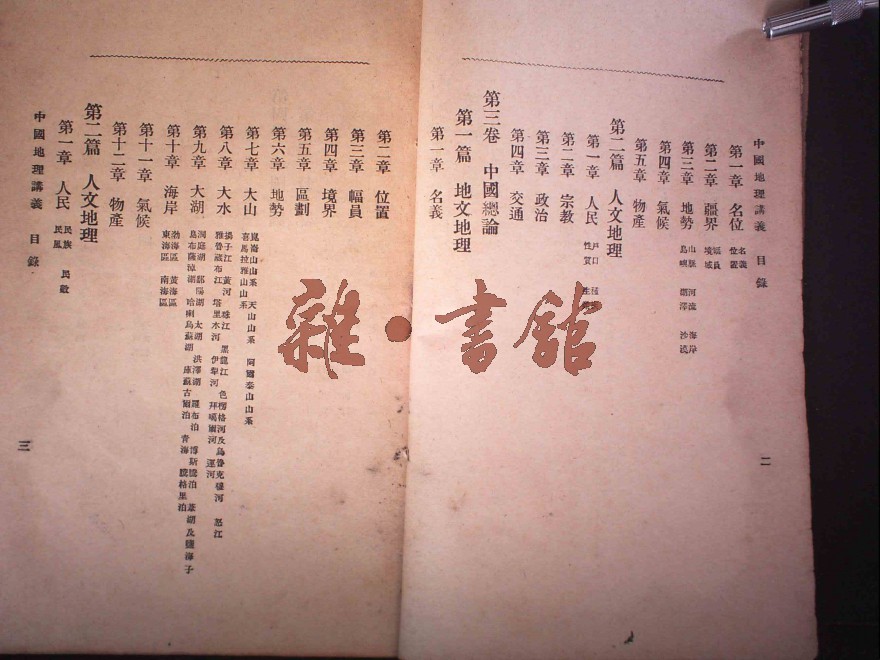 中國地理講義 目錄
第一章 名位 名義 位置
第二章 疆界 幅員 境域
第三章 地勢 山脈 河流 海岸 島嶼 湖澤 沙漠
第四章 氣候
第五章 物產
第二篇 人文地理
第一章 人民 戶口 性質
第二章 宗教
第三章 政治
第四章 交通
第三卷 中國總論
第一篇 地文地理
第一章 名義
二
第二章 位置
第三章 幅員
第四章 境界
第五章 區劃
第六章 地勢
第七章 大山 崑崙山山系 天山山系 阿爾泰山山系 喜馬拉雅山山系
第八章 大水 揚子江 黃河 珠江 黑龍江 色楞格河及烏魯克穆河 怒江 雅魯藏布江 塔里木河 伊犁河 拜噶爾河 運河
第九章 大湖 洞庭湖 鄱陽湖 太湖 洪澤湖 羅布泊 博斯騰泊 草湖及鹽海子 烏布薩淖湖 哈喇烏蘇湖 庫蘇古爾泊 青海 騰格里泊
第十章 海岸 渤海區 黃海區 東海區 南海區
第十一章 氣候
第十二章 物產
第二篇 人文地理
第一章 人民 民族 民數 民風
中國地理講義 目錄
三
雜·書館